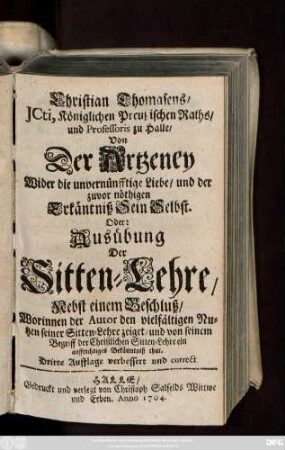 Christian Thomasens/
JCti, Königlichen Preuzischen Raths/
und Professoris zu Halle/
Von
Der Artzeney
Wider die unvernünfftige Liebe/ und der
zuvor nöthigen
Erkäntniß Sein Selbst.
Oder:
Ausübung
Der
Sitten-Lehre/
Nebst einem Beschluß/
Worinnen der Autor den vielfältigen Nu-
tzen seiner Sitten-Lehre zeiget/ und von seinem
Begriff der Christlichen Sitten-Lehre ein
auffrichtiges Bekäntniß thut.
Dritte Aufflage verbessert und correct
HALLE/
Gedruckt und verlegt von Christoph Salfelds Wittwe
und Erben. Anno 1704.